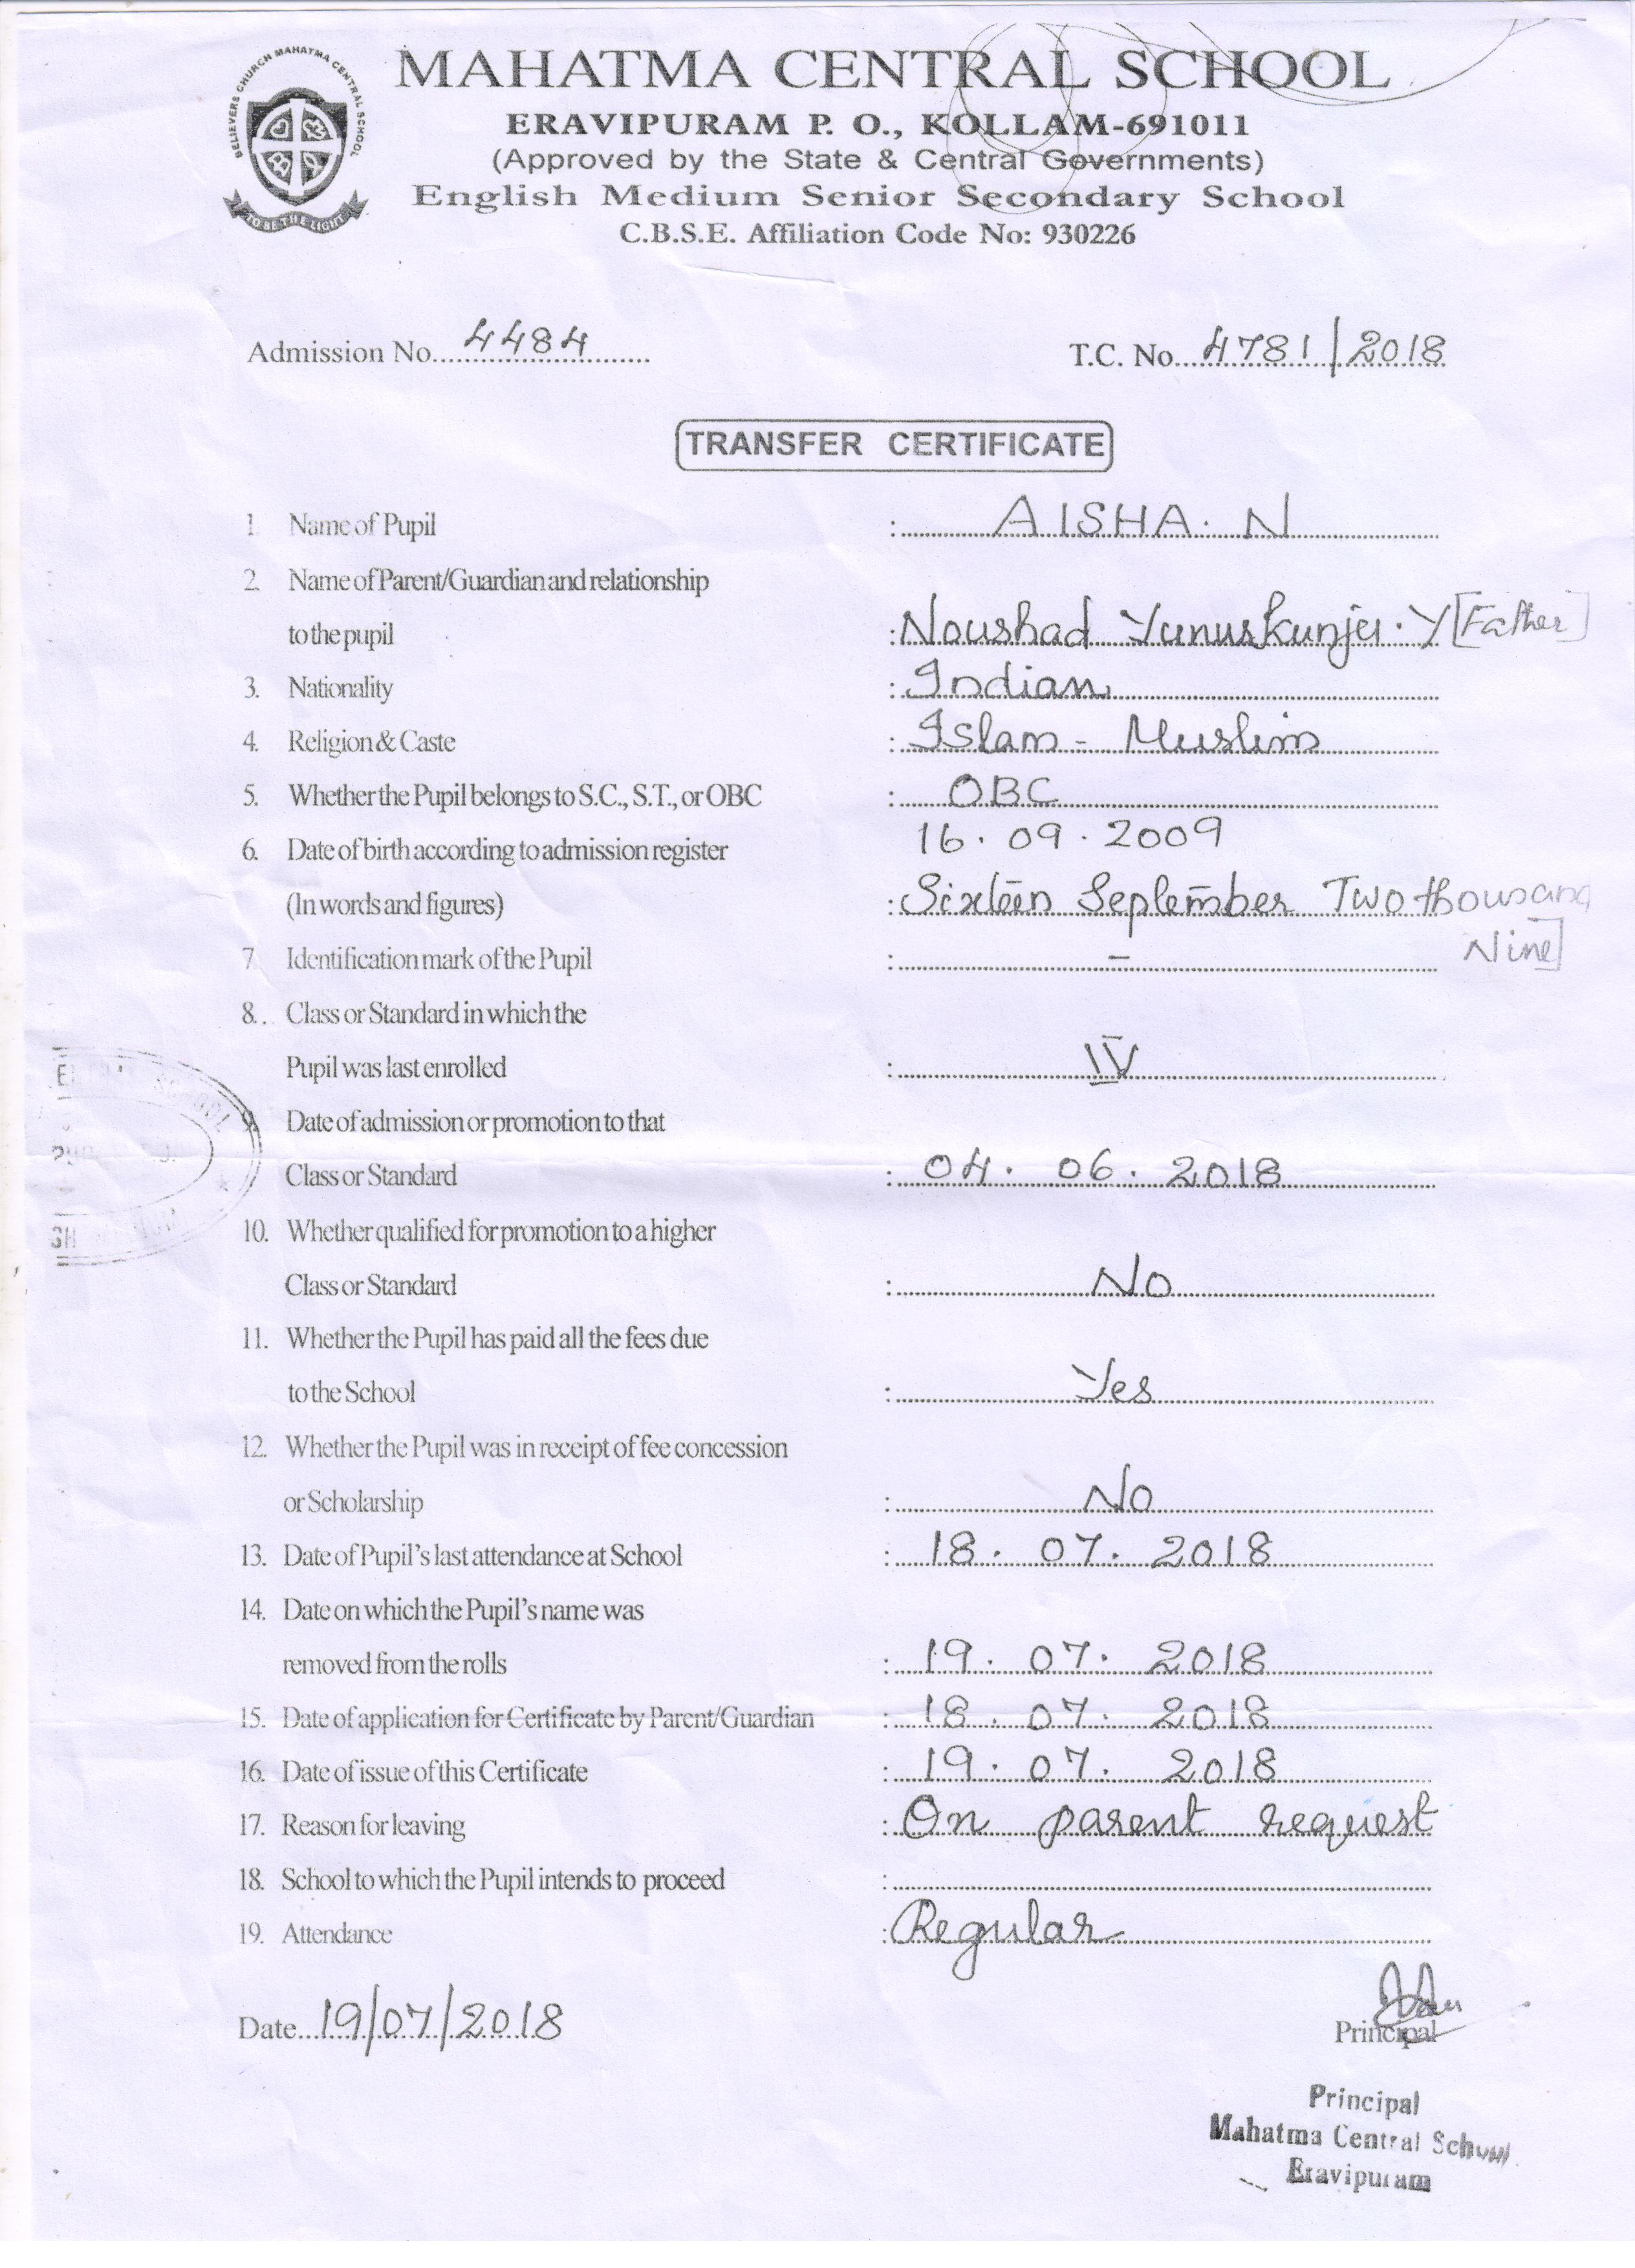 BELIEVERS CHURCH MAHATMA CENTRAL SCHOOL
TO BE THE LIGHT
MAHATMA CENTRAL SCHOOL
ERAVIPURAM P. O., KOLLAM-691011
(Approved by the State & Central Governments)
English Medium Senior Secondary School
C.B.S.E. Affiliation Code No: 930226
Admission No. 4484 T.C. No. 4781/2018
TRANSFER CERTIFICATE
1. Name of Pupil : AISHA. N
2. Name of Parent/Guardian and relationship
to the pupil : Noushad Yunuskunju. Y [Father]
3. Nationality : Indian
4. Religion & Caste : Islam - Muslim
5. Whether the Pupil belongs to S.C., S.T., or OBC : OBC
6. Date of birth according to admission register 16. 09. 2009
(In words and figures) : Sixteen September Two thousand
Nine]
7. Identification mark of the Pupil : -
8. Class or Standard in which the
Pupil was last enrolled : IV
9. Date of admission or promotion to that
Class or Standard : 04. 06. 2018
10. Whether qualified for promotion to a higher
Class or Standard : No
11. Whether the Pupil has paid all the fees due
to the School : Yes
12. Whether the Pupil was in receipt of fee concession
or Scholarship : No
13. Date of Pupil's last attendance at School : 18. 07. 2018
14. Date on which the Pupil's name was
removed from the rolls : 19. 07. 2018
15. Date of application for Certificate by Parent/Guardian : 18. 07. 2018
16. Date of issue of this Certificate : 19. 07. 2018
17. Reason for leaving : On parent request
18. School to which the Pupil intends to proceed :
19. Attendance : Regular
Date 19/07/2018
Principal
Principal
Mahatma Central School
Eravipuram